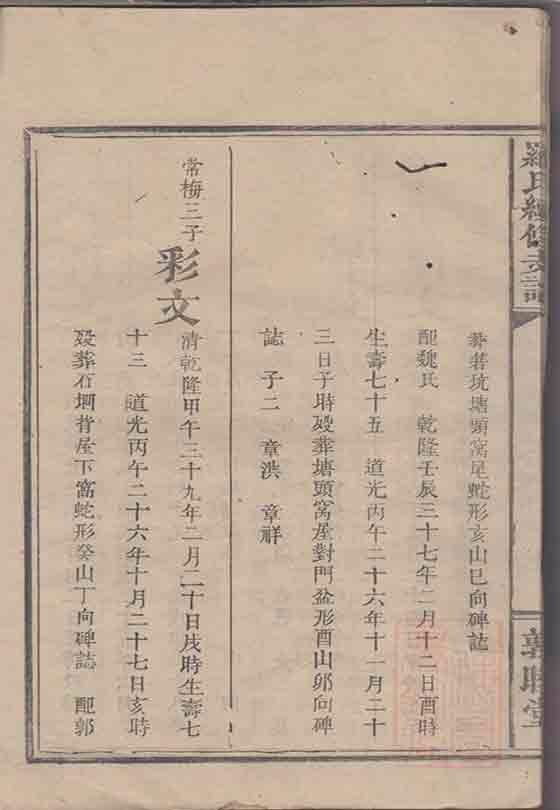 羅氏續修支譜
敦睦堂
葬若坑塘頭窩尾蛇形亥山巳向碑誌
配魏氏 乾隆壬辰三十七年二月十二日酉時
生壽七十五 道光丙午二十六年十一月二十
三日子時歿葬塘頭窩屋對門盆形酉山卯向碑
誌 子二 章洪 章祥
常梅三子
彩文
清乾隆甲午三十九年二月二十日戌時生壽七
十三 道光丙午二十六年十月二十七日亥時
歿葬石堋背屋下窩蛇形癸山丁向碑誌 配郭